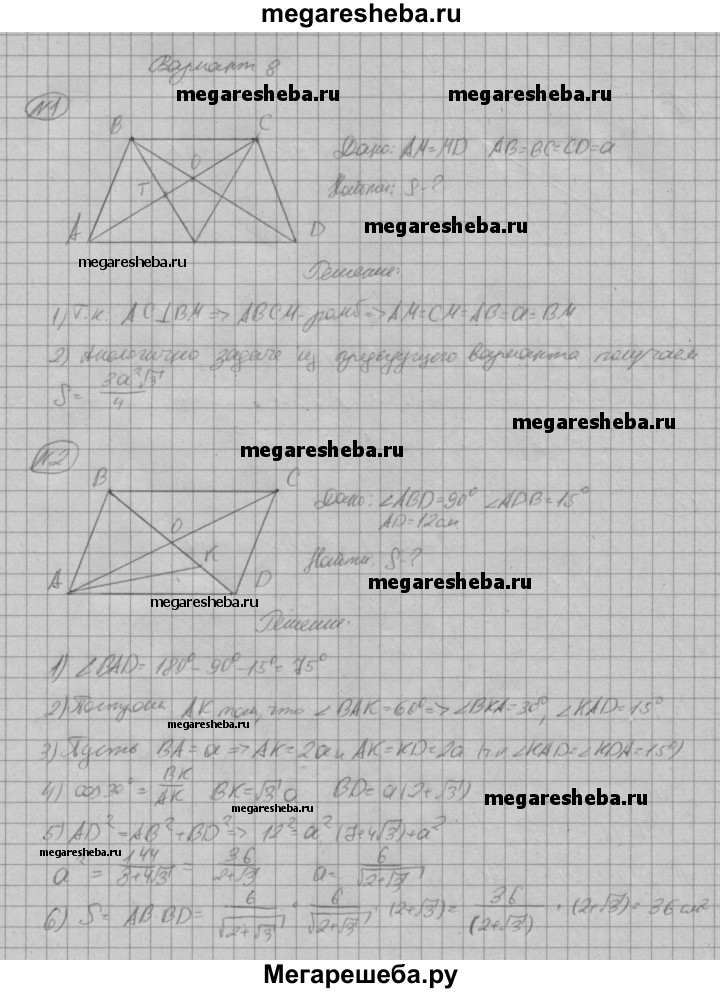 megaresheba.ru
Вариант 8
megaresheba.ru
megaresheba.ru
№1
B
C
O
T
A
D
Дано: AM=MD AB=BC=CD=a
Найти: S-?
megaresheba.ru
megaresheba.ru
Решение:
1) Т.к. AC⊥BM => ABCM-ромб => AM=CM=AB=a=BM
2) Аналогично задаче из предыдущего варианта получаем
S= 3a²√3/4
megaresheba.ru
megaresheba.ru
№2
B
C
O
K
A
D
Дано: ∠ABD=90° ∠ADB=15°
AD=12см
Найти: S-?
megaresheba.ru
megaresheba.ru
Решение:
1) ∠BAD= 180°-90°-15°=75°
2) Построим AK так, что ∠BAK=60° => ∠BKA=30°, ∠KAD=15°
megaresheba.ru
3) Пусть BA=a => AK=2a и AK=KD=2a (т.к ∠KAD=∠KDA=15°)
4) cos30°= BK/AK BK=√3 a BD= a(2+√3)
megaresheba.ru
megaresheba.ru
5) AD²=AB²+BD² => 12²=a²(7+4√3)+a²
megaresheba.ru
a²= 144/8+4√3 = 36/2+√3 a= 6/√2+√3
6) S= AB·BD= 6/√2+√3 · 6/√2+√3 · (2+√3)= 36/(2+√3) · (2+√3)= 36 см²
Мегарешеба.ру